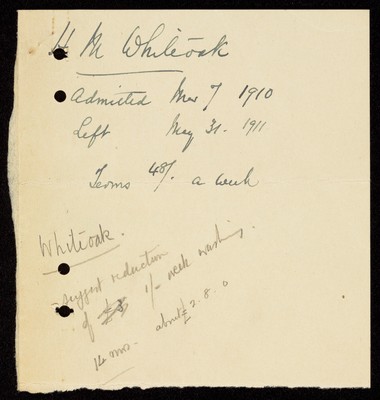 H M Whiteoak
Admitted Mar 7 1910
Left May 31. 1911
Terms 48/. a week
Whiteoak.
- suggest reduction
of 1/- week washing.
14 mos. about £2.8.0